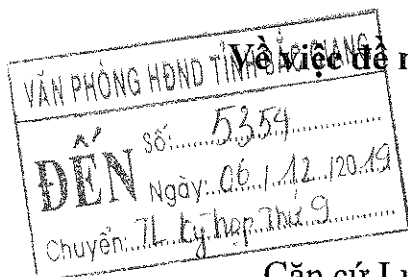 Về việc đề n
VĂN PHÒNG HĐND TỈNH BẮC GIANG
ĐẾN
Số: 5354
Ngày: 06 / 12 /2019
Chuyển: TL kỳ họp Thứ 9
Căn cứ L